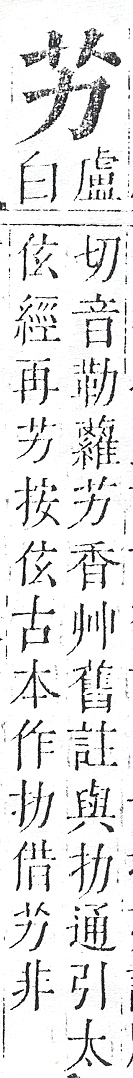 艻
盧
白
切音勒蘿艻香艸舊註與扐通引太
伭經再艻按伭古本作扐借艻非